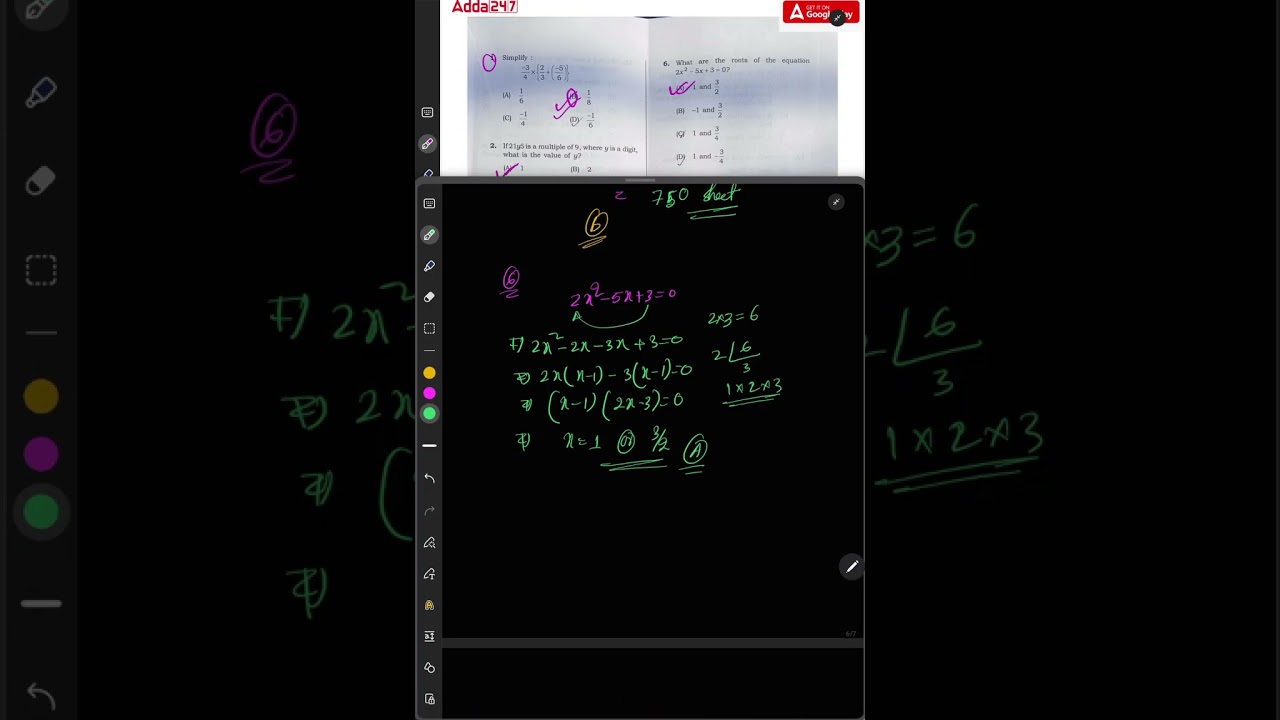 Adda247
GET IT ON
Google Play
1. Simplify :
-3/4 × [2/3 + (-5/6)]
(A) 1/6
(B) 1/8
(C) -1/4
(D) -1/6
2. If 21y5 is a multiple of 9, where y is a digit,
what is the value of y?
(A) 1
(B) 2
6. What are the roots of the equation
2x² - 5x + 3 = 0?
(A) 1 and 3/2
(B) -1 and 3/2
(C) 1 and 3/4
(D) 1 and -3/4
= 750 sheet
6
6
2x²-5x+3=0
2x3=6
2x²-2x-3x+3=0
2 6
3
2x(x-1)-3(x-1)=0
1x2x3
(x-1)(2x-3)=0
x=1 or 3/2 A
6/7
6
2x²
x3=6
6
3
2x
1x2x3
(